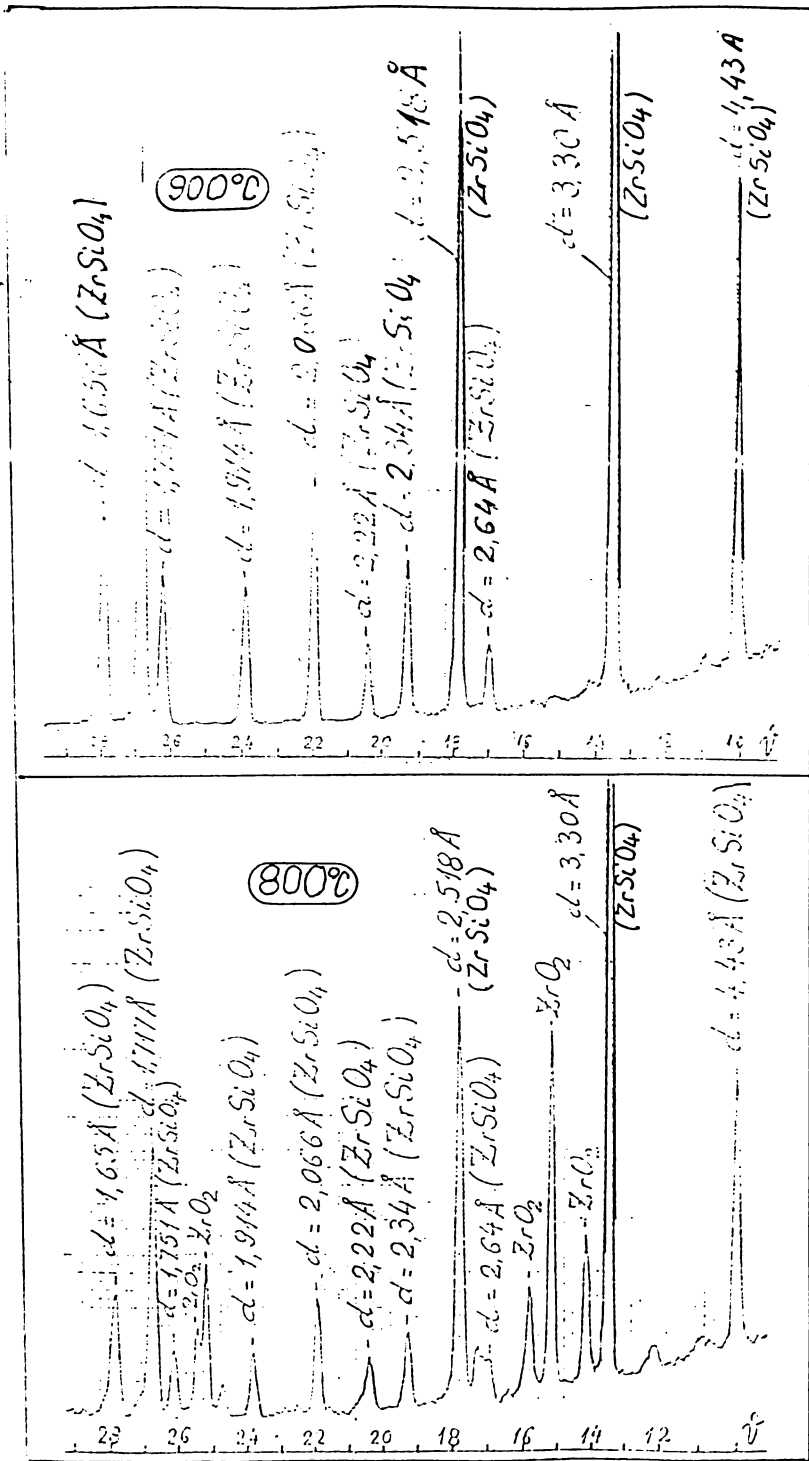 d = 1,65Å (ZrSiO₄)
(ZrSiO₄)
d = 1,914Å (ZrSiO₄)
d = 2,066Å (ZrSiO₄)
d = 2,22Å (ZrSiO₄)
d = 2,34Å (ZrSiO₄)
d = 2,518Å
(ZrSiO₄)
d = 2,64Å (ZrSiO₄)
d = 3,30Å
(ZrSiO₄)
d = 4,43Å
(ZrSiO₄)
26 24 22 20 18 16 14
d = 1,65Å (ZrSiO₄)
d = 1,717Å (ZrSiO₄)
d = 1,751Å (ZrSiO₄)
ZrO₂
ZrO₂
d = 1,914Å (ZrSiO₄)
d = 2,066Å (ZrSiO₄)
d = 2,22Å (ZrSiO₄)
d = 2,34Å (ZrSiO₄)
d = 2,518Å
(ZrSiO₄)
d = 2,64Å (ZrSiO₄)
ZrO₂
ZrO₂
ZrO₂
d = 3,30Å
(ZrSiO₄)
d = 4,43Å (ZrSiO₄)
28 26 24 22 20 18 16 14 12